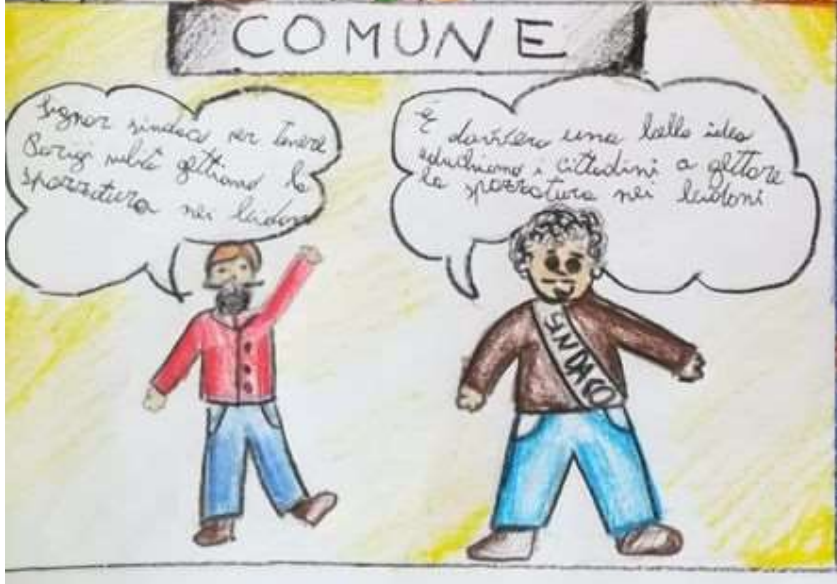 COMUNE
Signor sindaco per tenere
Parigi pulita gettiamo la
spazzatura nei bidoni
È davvero una bella idea
educhiamo i cittadini a gettare
la spazzatura nei bidoni
SINDACO